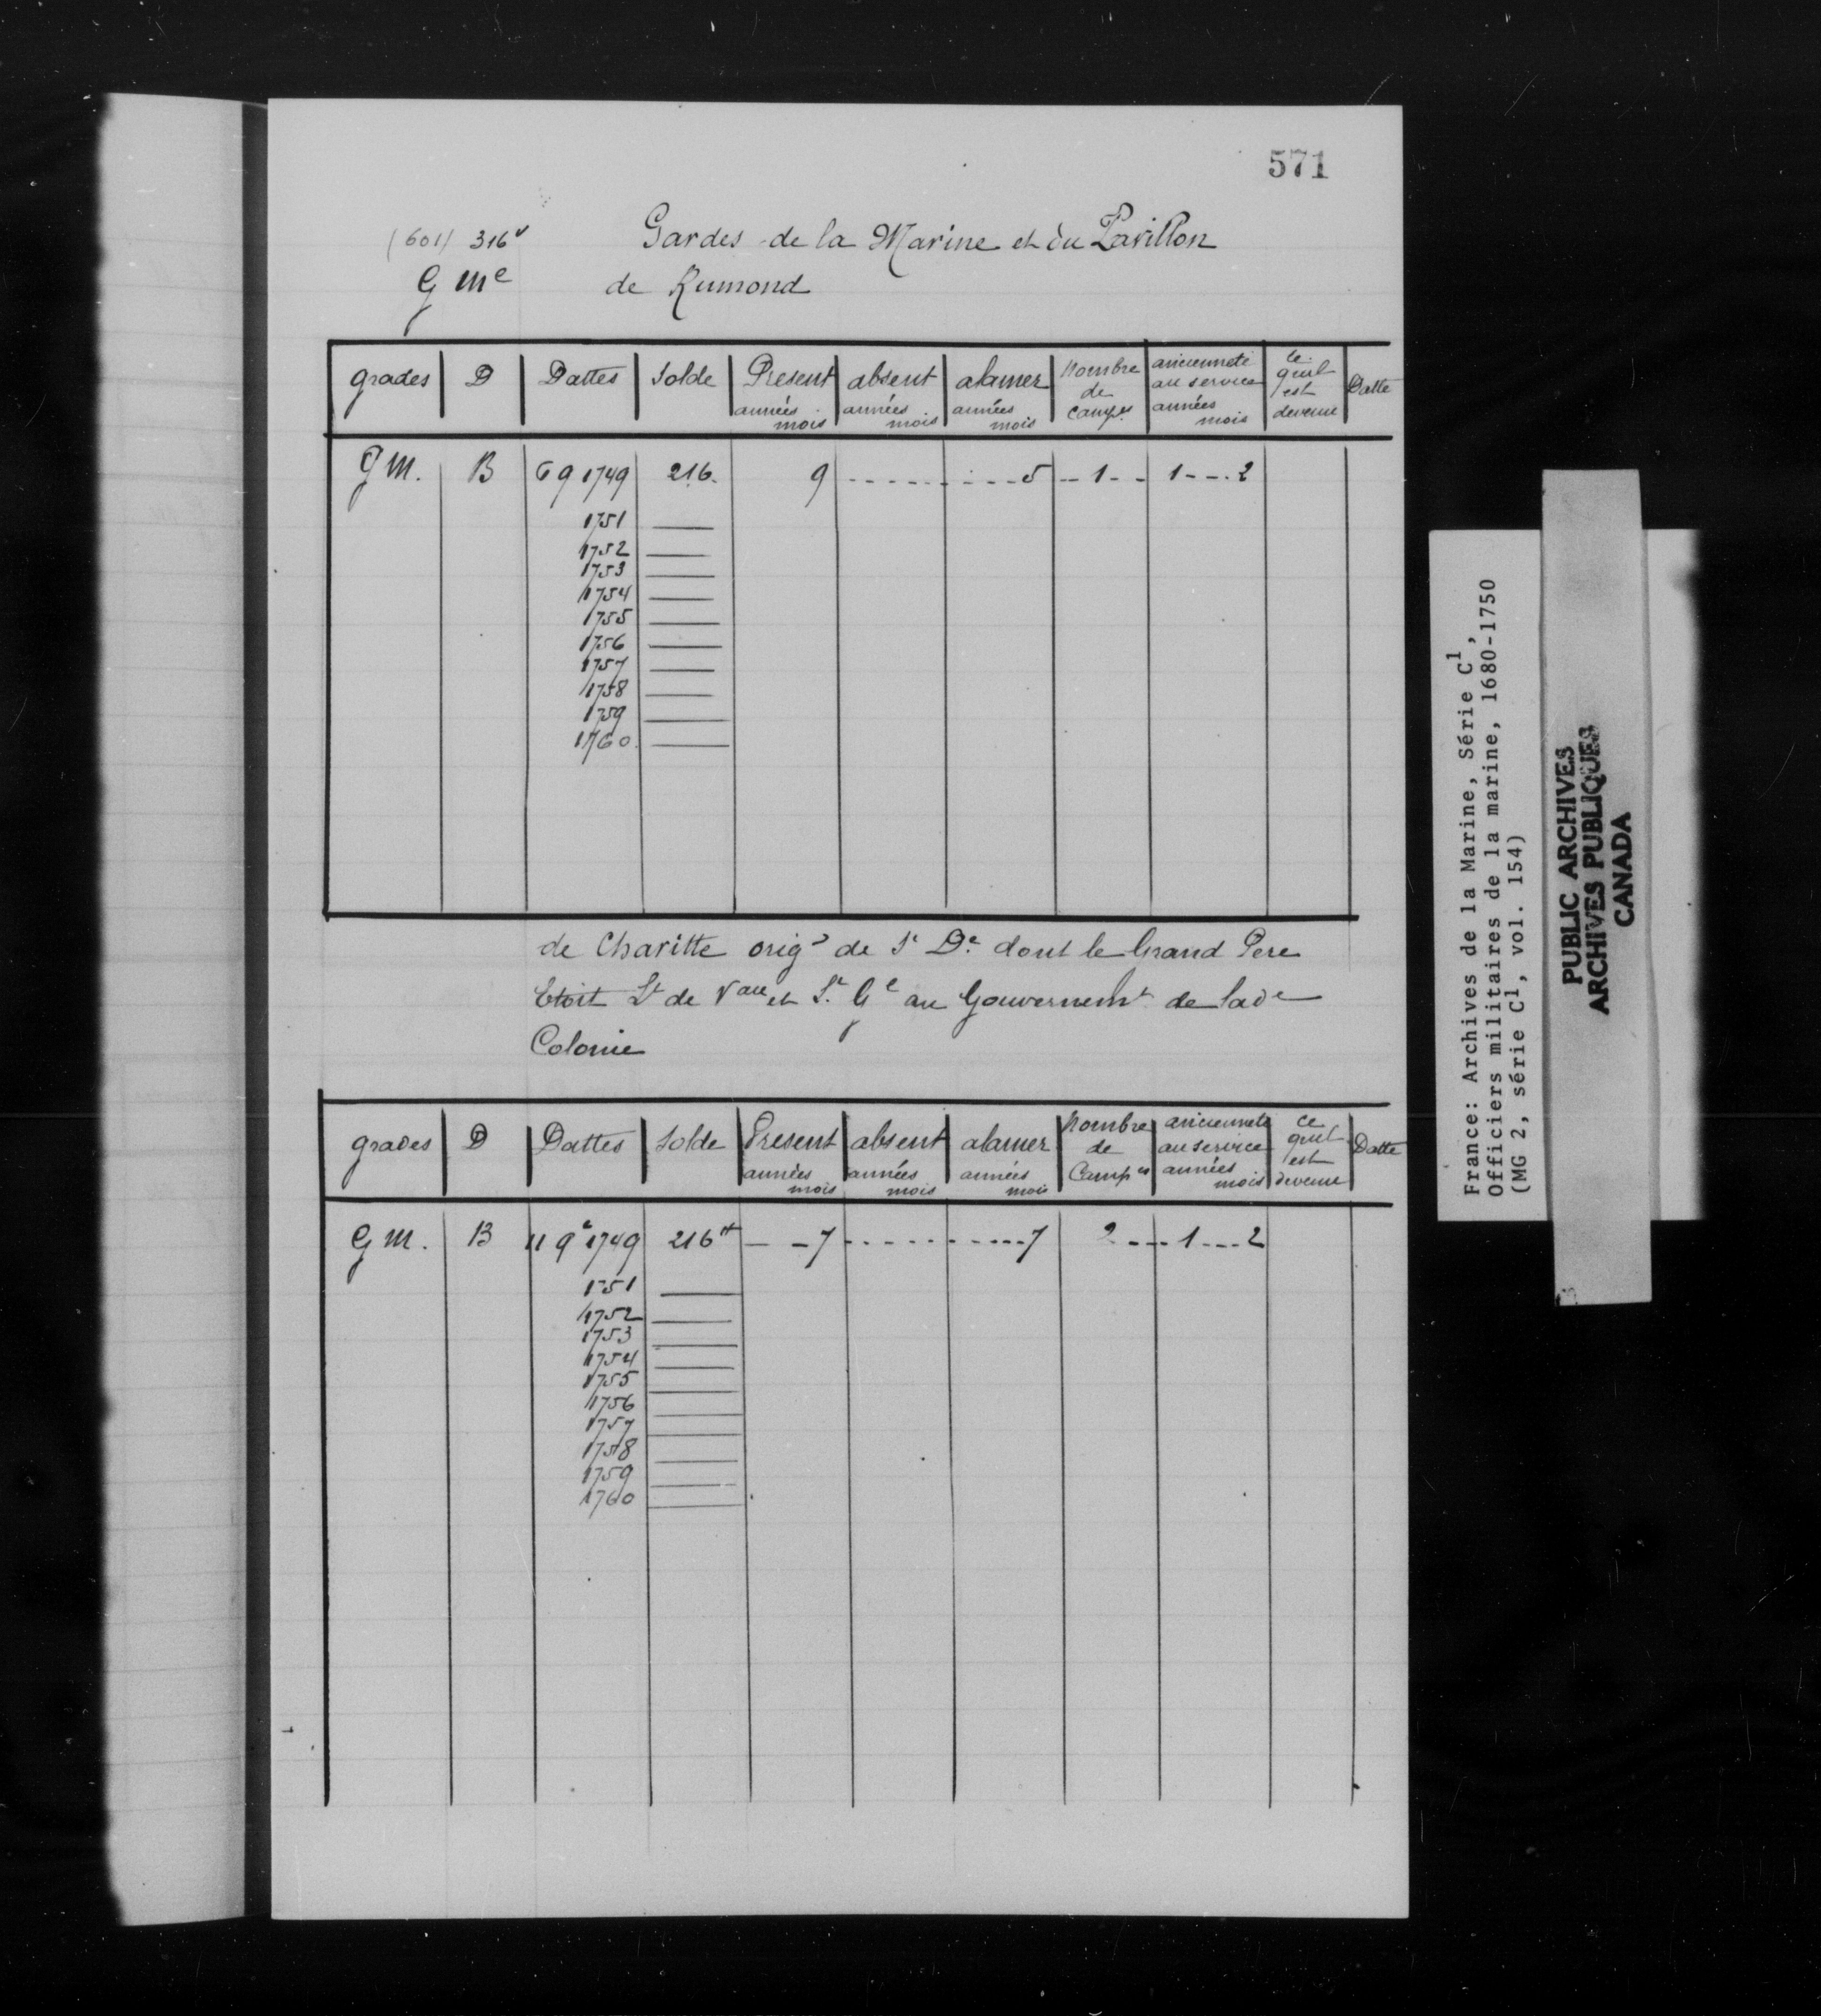 571
(601) 316v
Gardes de la Marine et du Pavillon
G Me de Rumond
grades D Dattes Solde Present années mois absent années mois alamer années mois Nombre de Camp.es ancienneté au service années mois ce quil est devenu Datte
G M. B 6 9 1749 216. 9 - - - - - - - - - 5 - - 1 - - 1 - - - 2
1751
1752
1753
1754
1755
1756
1757
1758
1759
1760.
de Charitte orig.e de St De. dont le Grand Pere
Etoit Lt de Vau et Lt. Gl au Gouvernemt de lade
Colonie
grades D Dattes Solde Present années mois absent années mois alamer années mois Nombre de Camp es ancienneté au service années mois ce quil est devenu Datte
G M. B 11 9e 1749 216tt - - 7 - - - - - - - - - - 7 2 - - - - 1 - - - 2
1751
1752
1753
1754
1755
1756
1757
1758
1759
1760
France: Archives de la Marine, Série C1,
Officiers militaires de la marine, 1680-1750
(MG 2, série C1, vol. 154)
PUBLIC ARCHIVES
ARCHIVES PUBLIQUES
CANADA